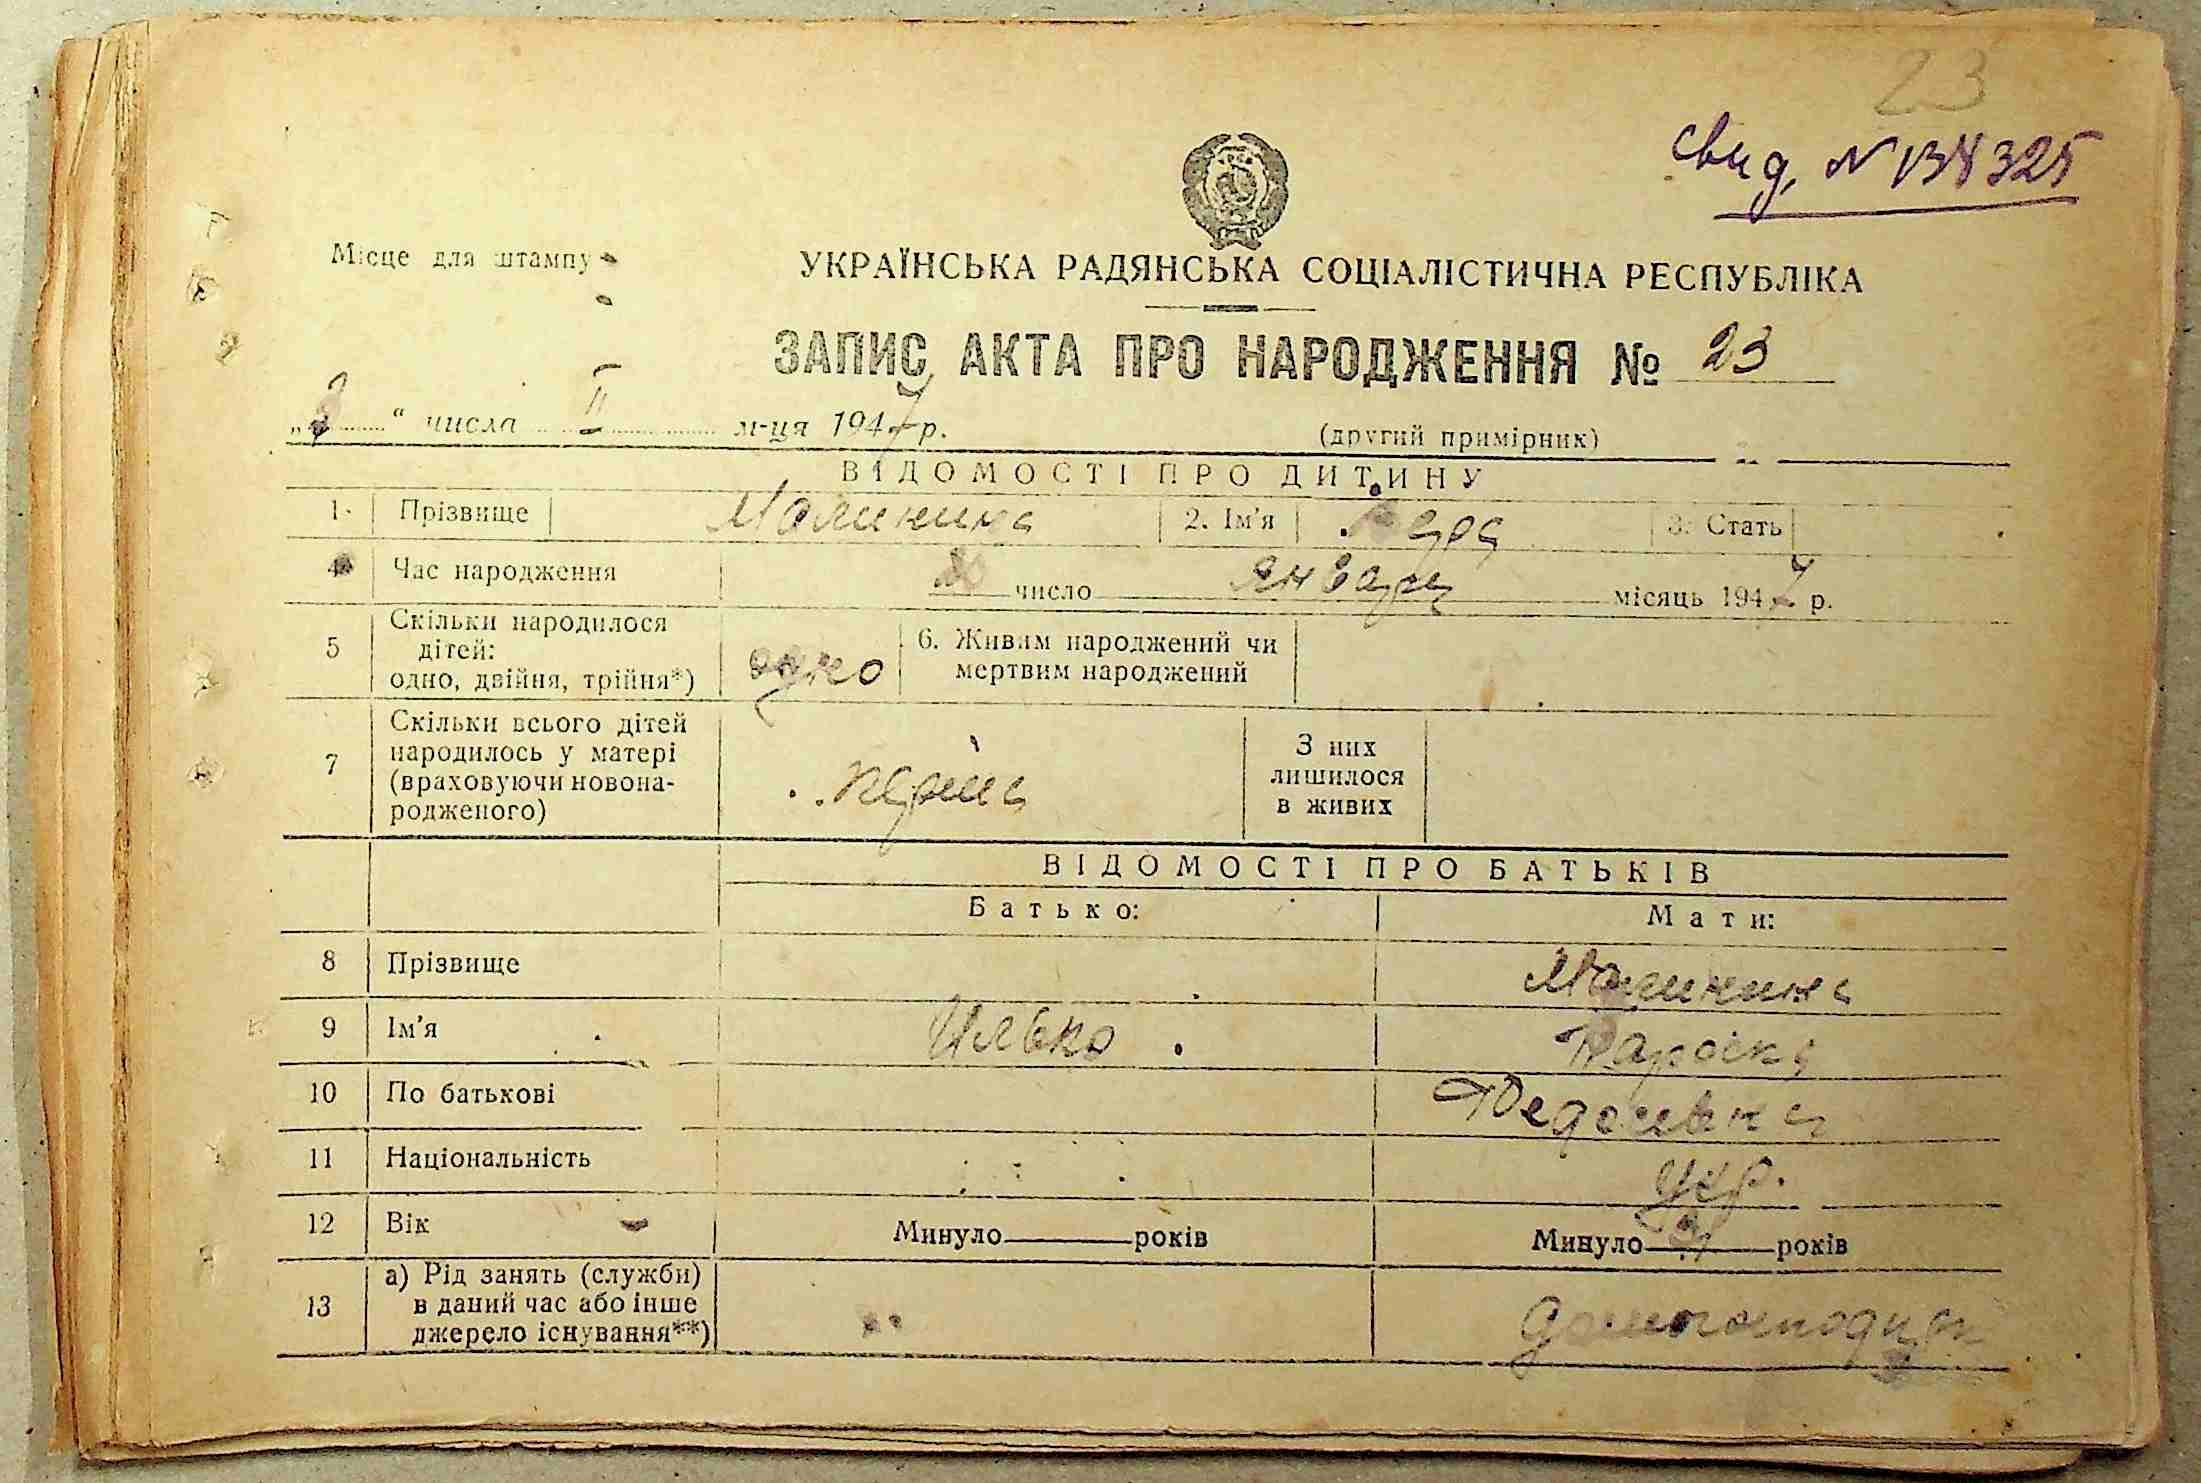 23
свид. N 138325
Місце для штампу
УКРАЇНСЬКА РАДЯНСЬКА СОЦІАЛІСТИЧНА РЕСПУБЛІКА
ЗАПИС АКТА ПРО НАРОДЖЕННЯ № 23
" " числа II м-ця 1947 р.
(другий примірник)
ВІДОМОСТІ ПРО ДИТИНУ
1 Прізвище 2. Ім'я 3. Стать
4 Час народження число января місяць 1947 р.
5 Скільки народилося
дітей:
одно, двійня, трійня*) одно 6. Живим народжений чи
мертвим народжений
7 Скільки всього дітей
народилось у матері
(враховуючи новона-
родженого)
З них
лишилося
в живих
ВІДОМОСТІ ПРО БАТЬКІВ
Батько: Мати:
8 Прізвище
9 Ім'я Илько
10 По батькові
11 Національність Укр.
12 Вік Минуло років Минуло років
13 а) Рід занять (служби)
в даний час або інше
джерело існування**)